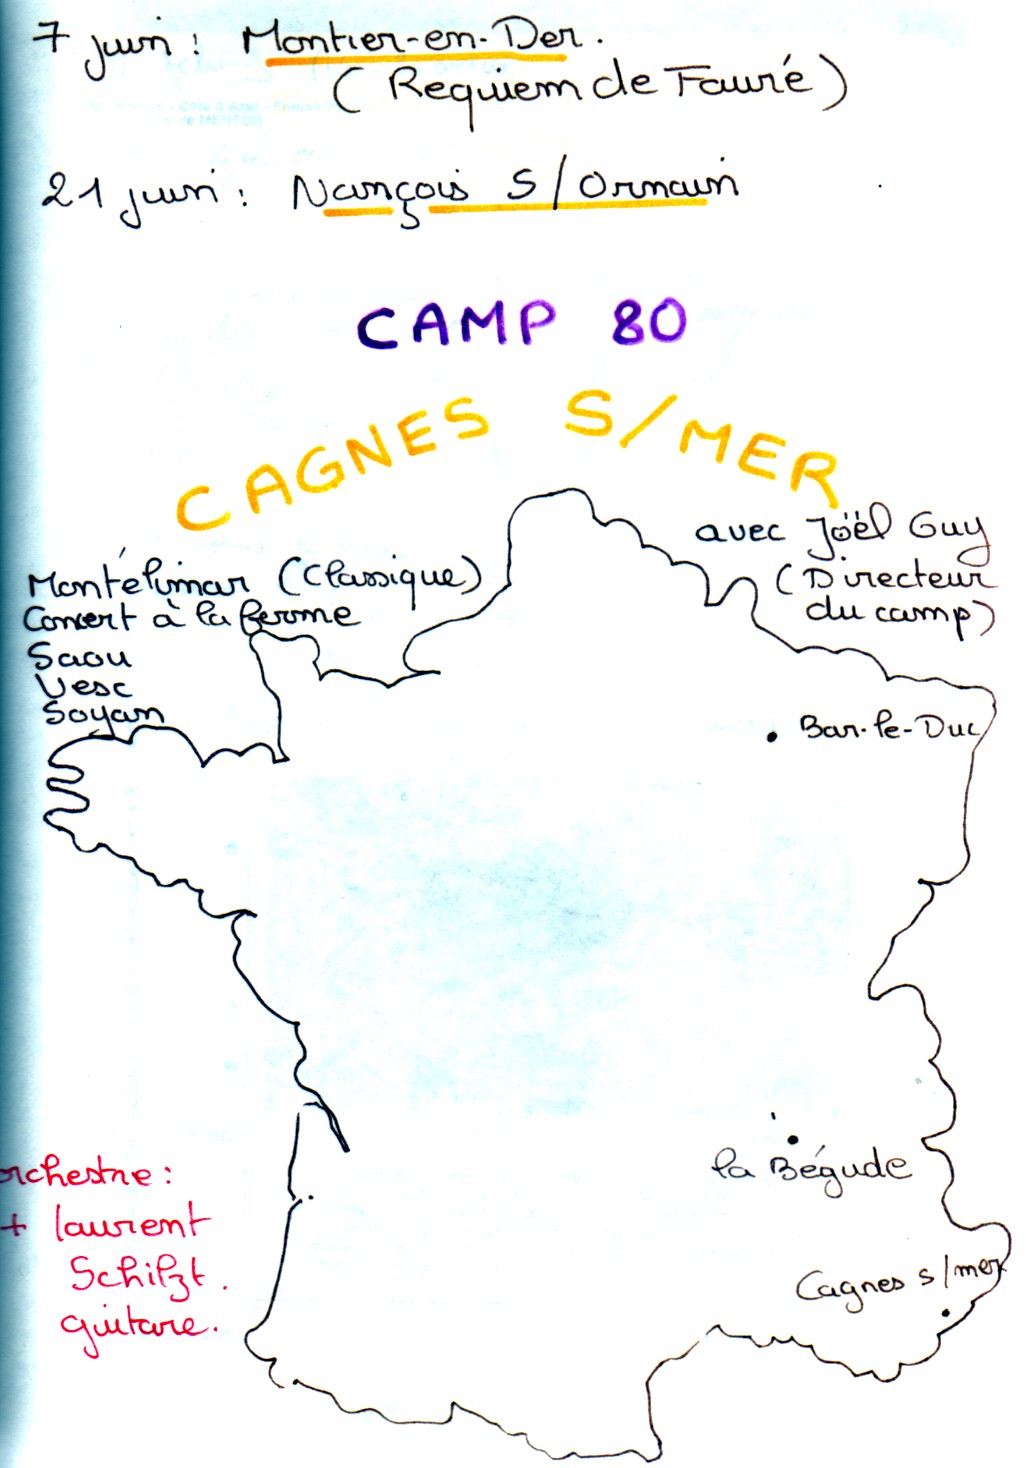 7 juin : Montier-en-Der.
(Requiem de Fauré)
21 juin : Nançois S/Ornain
CAMP 80
CAGNES S/MER
avec Joël Guy
(Directeur
du camp)
Montélimar (Classique)
Concert à la ferme
Saou
Vesc
Soyan
Bar-le-Duc
la Bégude
orchestre :
+ laurent
Schilzt.
guitare.
Cagnes s/mer